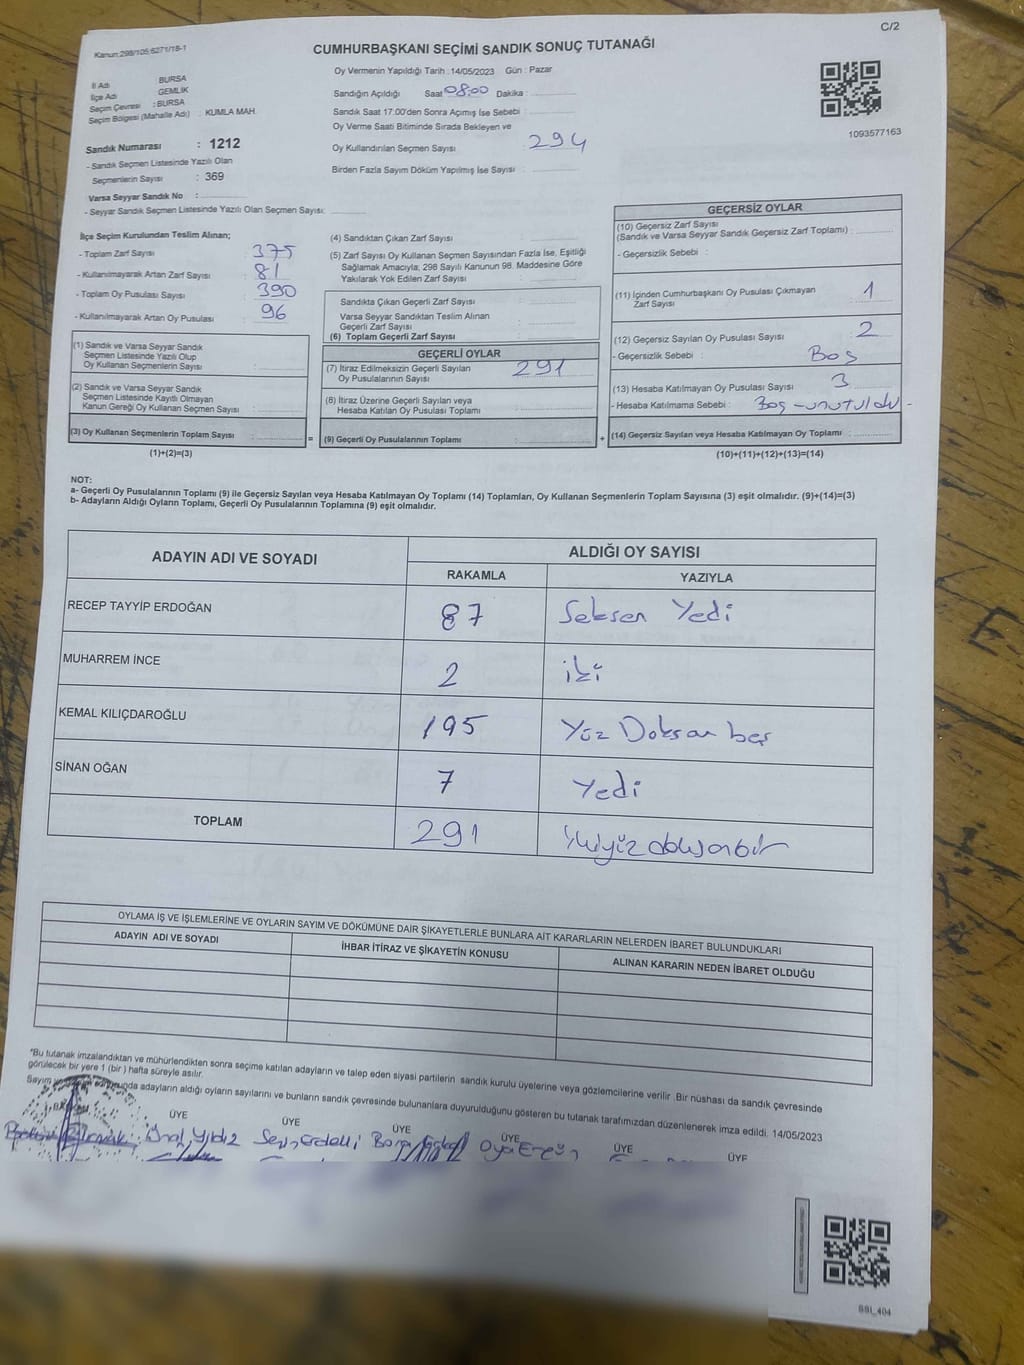 C/2
Kanun:298/105;6271/18-1
CUMHURBAŞKANI SEÇİMİ SANDIK SONUÇ TUTANAĞI
İl Adı : BURSA
İlçe Adı : GEMLİK
Seçim Çevresi : BURSA
Seçim Bölgesi (Mahalle Adı) : KUMLA MAH.
Sandık Numarası : 1212
- Sandık Seçmen Listesinde Yazılı Olan
Seçmenlerin Sayısı : 369
Varsa Seyyar Sandık No :
- Seyyar Sandık Seçmen Listesinde Yazılı Olan Seçmen Sayısı:
Oy Vermenin Yapıldığı Tarih : 14/05/2023 Gün : Pazar
Sandığın Açıldığı Saat 08:00 Dakika :
Sandık Saat 17.00'den Sonra Açımış İse Sebebi :
Oy Verme Saati Bitiminde Sırada Bekleyen ve
Oy Kullandırılan Seçmen Sayısı : 294
Birden Fazla Sayım Döküm Yapılmış İse Sayısı :
1093577163
İlçe Seçim Kurulundan Teslim Alınan;
- Toplam Zarf Sayısı : 375
- Kullanılmayarak Artan Zarf Sayısı : 81
- Toplam Oy Pusulası Sayısı : 390
- Kullanılmayarak Artan Oy Pusulası : 96
(1) Sandık ve Varsa Seyyar Sandık
Seçmen Listesinde Yazılı Olup
Oy Kullanan Seçmenlerin Sayısı :
(2) Sandık ve Varsa Seyyar Sandık
Seçmen Listesinde Kayıtlı Olmayan
Kanun Gereği Oy Kullanan Seçmen Sayısı :
(3) Oy Kullanan Seçmenlerin Toplam Sayısı :
(1)+(2)=(3)
(4) Sandıktan Çıkan Zarf Sayısı :
(5) Zarf Sayısı Oy Kullanan Seçmen Sayısından Fazla İse, Eşitliği
Sağlamak Amacıyla, 298 Sayılı Kanunun 98. Maddesine Göre
Yakılarak Yok Edilen Zarf Sayısı :
Sandıkta Çıkan Geçerli Zarf Sayısı :
Varsa Seyyar Sandıktan Teslim Alınan
Geçerli Zarf Sayısı :
(6) Toplam Geçerli Zarf Sayısı :
GEÇERLİ OYLAR
(7) İtiraz Edilmeksizin Geçerli Sayılan
Oy Pusulalarının Sayısı : 291
(8) İtiraz Üzerine Geçerli Sayılan veya
Hesaba Katılan Oy Pusulası Toplamı :
= (9) Geçerli Oy Pusulalarının Toplamı :
GEÇERSİZ OYLAR
(10) Geçersiz Zarf Sayısı
(Sandık ve Varsa Seyyar Sandık Geçersiz Zarf Toplamı) :
- Geçersizlik Sebebi :
(11) İçinden Cumhurbaşkanı Oy Pusulası Çıkmayan
Zarf Sayısı : 1
(12) Geçersiz Sayılan Oy Pusulası Sayısı : 2
- Geçersizlik Sebebi : Boş
(13) Hesaba Katılmayan Oy Pusulası Sayısı : 3
- Hesaba Katılmama Sebebi : Boş - unutuldu -
+ (14) Geçersiz Sayılan veya Hesaba Katılmayan Oy Toplamı :
(10)+(11)+(12)+(13)=(14)
NOT:
a- Geçerli Oy Pusulalarının Toplamı (9) ile Geçersiz Sayılan veya Hesaba Katılmayan Oy Toplamı (14) Toplamları, Oy Kullanan Seçmenlerin Toplam Sayısına (3) eşit olmalıdır. (9)+(14)=(3)
b- Adayların Aldığı Oyların Toplamı, Geçerli Oy Pusulalarının Toplamına (9) eşit olmalıdır.
ADAYIN ADI VE SOYADI ALDIĞI OY SAYISI
RAKAMLA YAZIYLA
RECEP TAYYİP ERDOĞAN 87 Seksen Yedi
MUHARREM İNCE 2 iki
KEMAL KILIÇDAROĞLU 195 Yüz Doksan beş
SİNAN OĞAN 7 Yedi
TOPLAM 291 ikiyüz doksanbir
OYLAMA İŞ VE İŞLEMLERİNE VE OYLARIN SAYIM VE DÖKÜMÜNE DAİR ŞİKAYETLERLE BUNLARA AİT KARARLARIN NELERDEN İBARET BULUNDUKLARI
ADAYIN ADI VE SOYADI İHBAR İTİRAZ VE ŞİKAYETİN KONUSU ALINAN KARARIN NEDEN İBARET OLDUĞU
*Bu tutanak imzalandıktan ve mühürlendikten sonra seçime katılan adayların ve talep eden siyasi partilerin sandık kurulu üyelerine veya gözlemcilerine verilir. Bir nüshası da sandık çevresinde
görülecek bir yere 1 (bir) hafta süreyle asılır.
Sayım adayların aldığı oyların sayılarını ve bunların sandık çevresinde bulunanlara duyurulduğunu gösteren bu tutanak tarafımızdan düzenlenerek imza edildi. 14/05/2023
ÜYE ÜYE ÜYE ÜYE ÜYE ÜYE
Ünal Yıldız
SSI_404